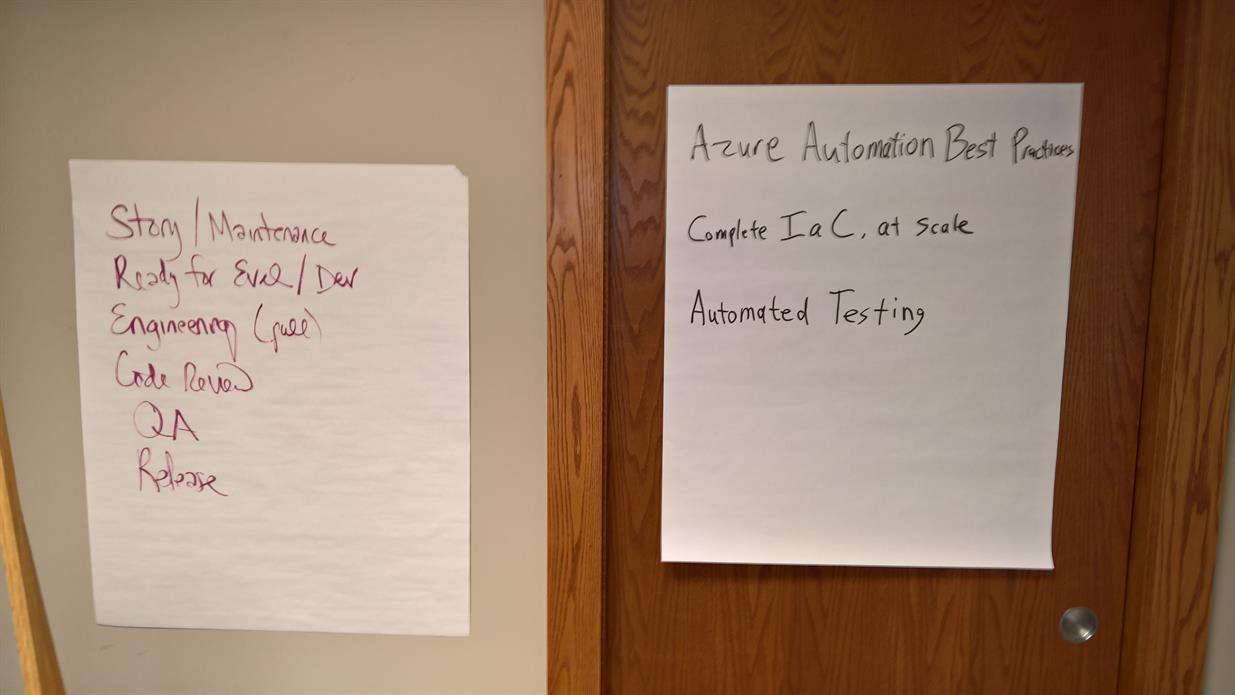 Story / Maintenance
Ready for Eval / Dev
Engineering (pull)
Code Review
QA
Release
Azure Automation Best Practices
Complete IaC, at scale
Automated Testing